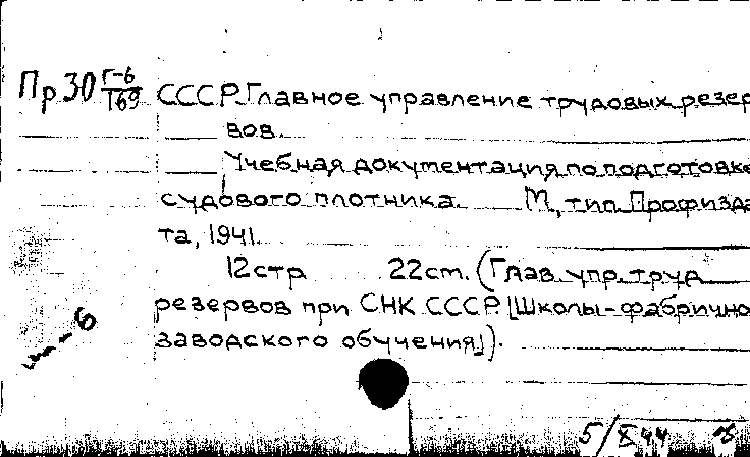 Пр30 Г-6/169 СССР. Главное управление трудовых резер
вов.
Учебная документация по подготовке
судового плотника. М, тип. Профизда
та, 1941.
12стр 22cm. (Глав. упр. труд
резервов при СНК СССР. [Школы-фабрично
заводского обучения]).
5/X 44